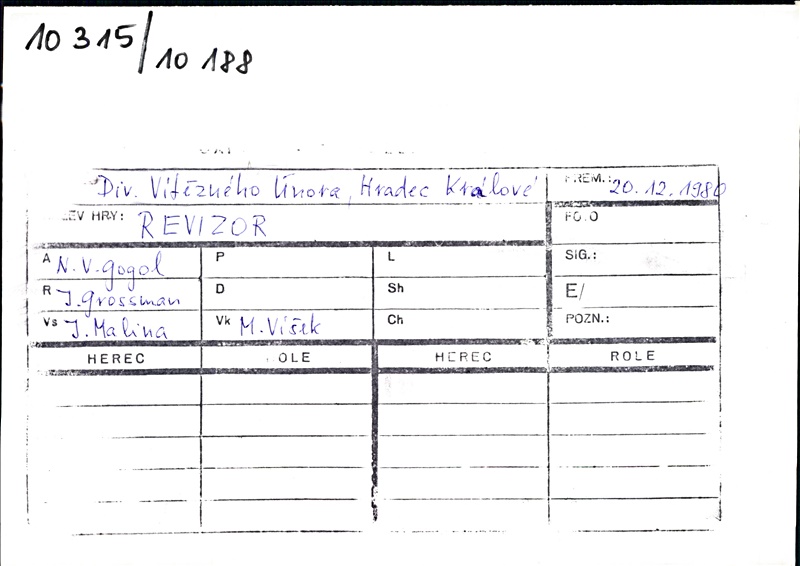 10 315/10 188
Div. Vítězného Února, Hradec Králové PREM.: 20.12.1980
EV HRY: REVIZOR FO.O
A N. V. Gogol P L SIG.:
R J. Grossman D Sh E/
Vs J. Malina Vk M. Višek Ch POZN.:
HEREC OLE HEREC ROLE